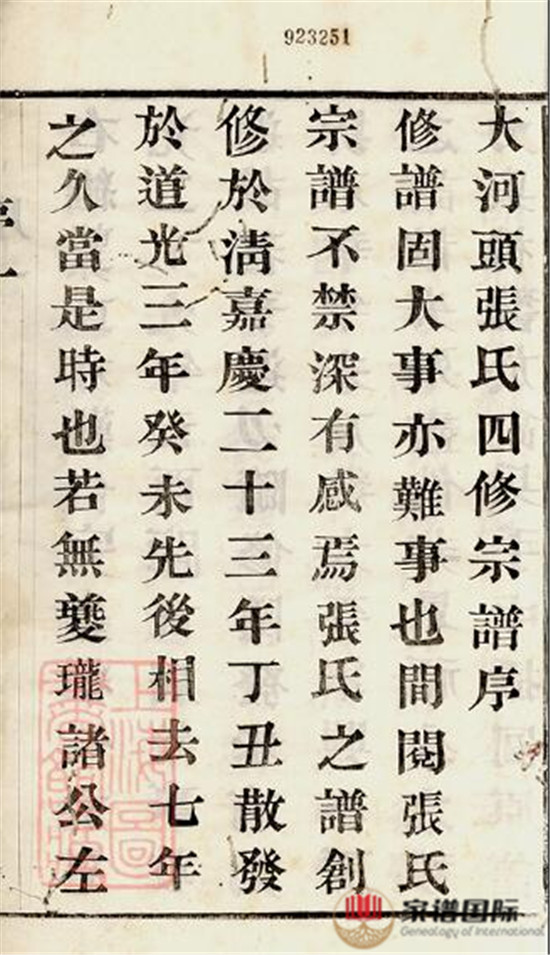 923251
大河頭張氏四修宗譜序
修譜固大事亦難事也間閱張氏
宗譜不禁深有感焉張氏之譜創
修於淸嘉慶二十三年丁丑散發
於道光三年癸未先後相去七年
之久當是時也若無夔瓏諸公左
序一
家谱国际
Genealogy of International